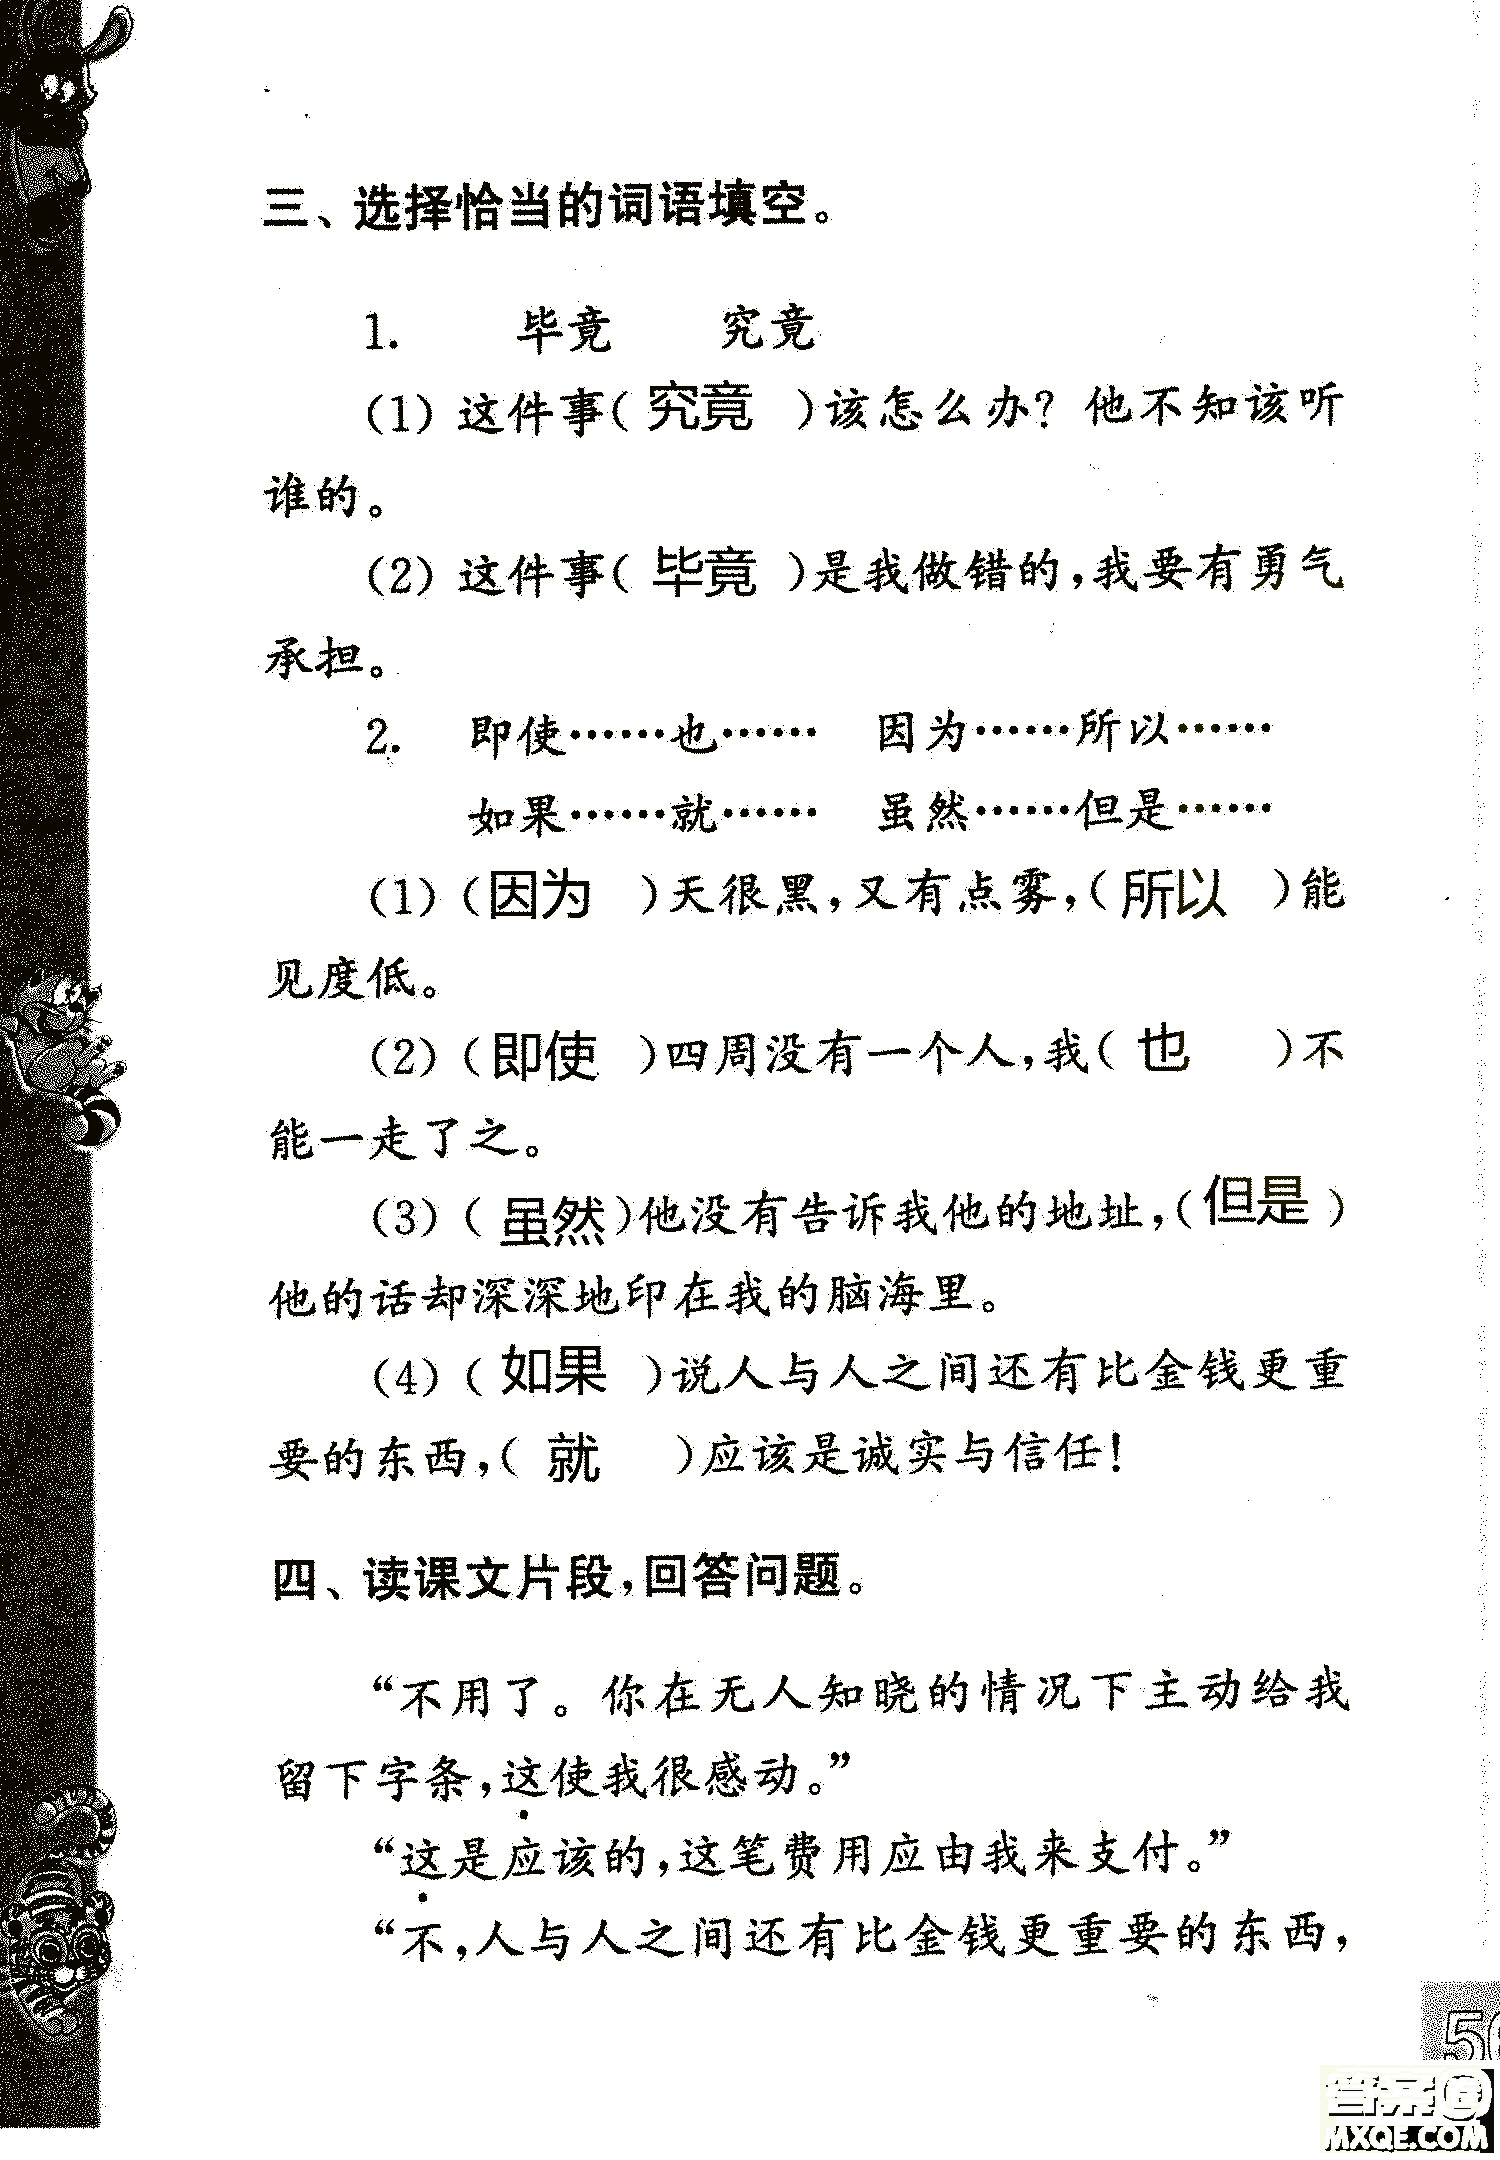 三、选择恰当的词语填空。
1. 毕竟 究竟
(1) 这件事( 究竟 )该怎么办? 他不知该听
谁的。
(2) 这件事( 毕竟 )是我做错的,我要有勇气
承担。
2. 即使……也…… 因为……所以……
如果……就…… 虽然……但是……
(1) (因为 )天很黑,又有点雾,( 所以 )能
见度低。
(2) (即使 )四周没有一个人,我( 也 )不
能一走了之。
(3) ( 虽然)他没有告诉我他的地址,(但是 )
他的话却深深地印在我的脑海里。
(4) ( 如果 )说人与人之间还有比金钱更重
要的东西,( 就 )应该是诚实与信任!
四、读课文片段,回答问题。
“不用了。你在无人知晓的情况下主动给我
留下字条,这使我很感动。”
“这是应该的,这笔费用应由我来支付。”
“不,人与人之间还有比金钱更重要的东西,
答案
MXQE.COM